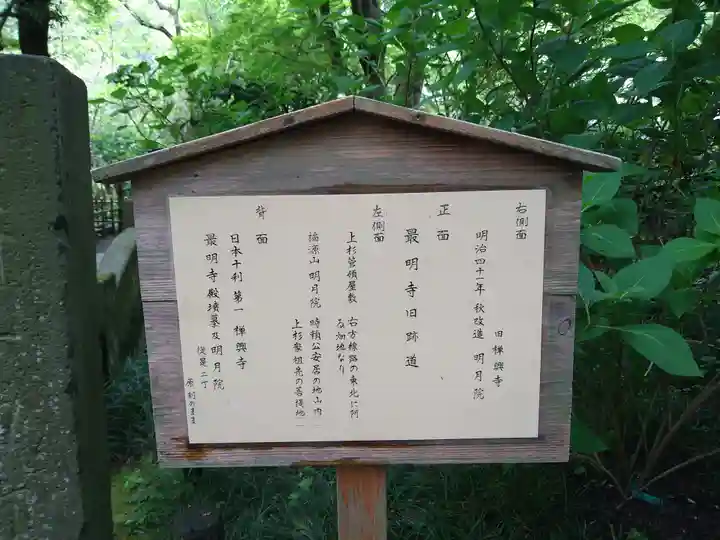 右側面
明治四十一年 秋改造 旧禅興寺 明月院
正面
最明寺旧跡道
左側面
上杉管領屋敷 右方線路の東北に阿る畑地なり
福源山 明月院 時頼公安居の地山内上杉家祖先の菩提地
背面
日本十刹 第一 禅興寺
最明寺殿墳墓及明月院 従是二丁
原刻のまま